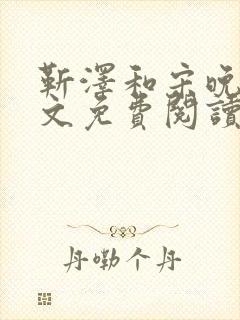 靳澤和宋晚
文免費閱讀
丹嘞个丹